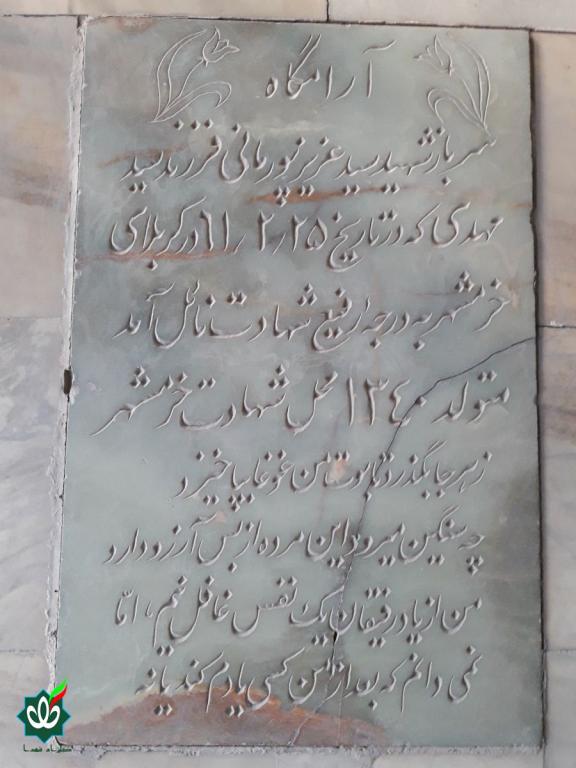 آرامگاه
سرباز شهید سید عزیز پورمانی فرزند سید
مهدی که در تاریخ ۶۱٫۲٫۲۵ در کربلای
خرمشهر به درجه رفیع شهادت نائل آمد
متولد ۱۳۴۰ محل شهادت خرمشهر
زهر جا بگذرد تابوت من غوغا بپا خیزد
چه سنگین میرود این مرده از بس آرزو دارد
من از یاد رفیقان یک نفس غافل نیم، امّا
نمی دانم که بعد از من کسی یادم کند یا نه